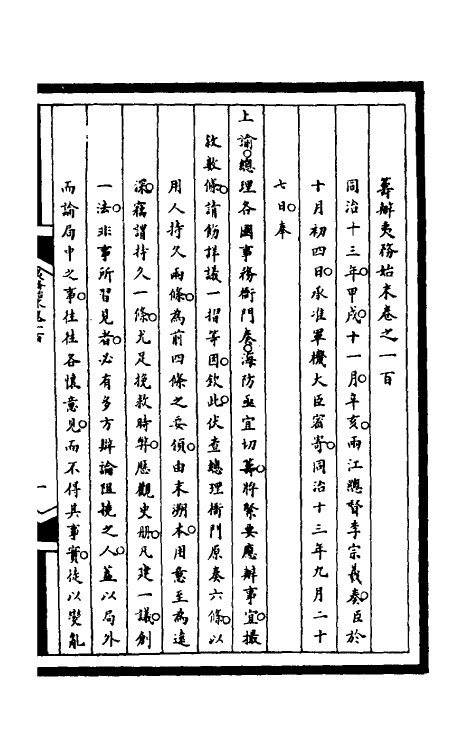 籌辦夷務始末卷之一百
同治十三年甲戌十一月辛亥兩江總督李宗羲奏臣於
十月初四日承准軍機大臣密寄同治十三年九月二十
七日奉
上諭總理各國事務衙門奏海防亟宜切籌將緊要應辦事宜撮
敘數條請飭詳議一摺等因欽此伏查總理衙門原奏六條以
用人持久兩條為前四條之要領由末溯本用意至為遠
深竊謂持久一條尤足挽救時弊歷觀史册凡建一議創
一法非事所習見者必有多方辯論阻撓之人蓋以局外
而論局中之事往往各懷意見而不得其事實徒以變亂